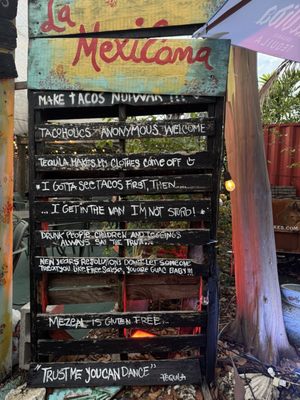 La
Mexicana
MAKE TACOS NOT WAR !!!
TACOHOLICS ANONYMOUS WELCOME
TEQUILA MAKES MY CLOTHES COME OFF
* I GOTTA SEE TACOS FIRST, THEN.....
... I GET IN THE VAN I'M NOT STUPID! *
DRUNK PEOPLE, CHILDREN AND LEGGINGS
ALWAYS SAY THE TRUTH...
NEW YEARS RESOLUTIONS: DON'T LET SOMEONE
TREAT YOU LIKE FREE SALSA, YOU'RE GUAC BABY!!!
MEZCAL IS GLUTEN FREE...
"TRUST ME YOU CAN DANCE"
TEQUILA